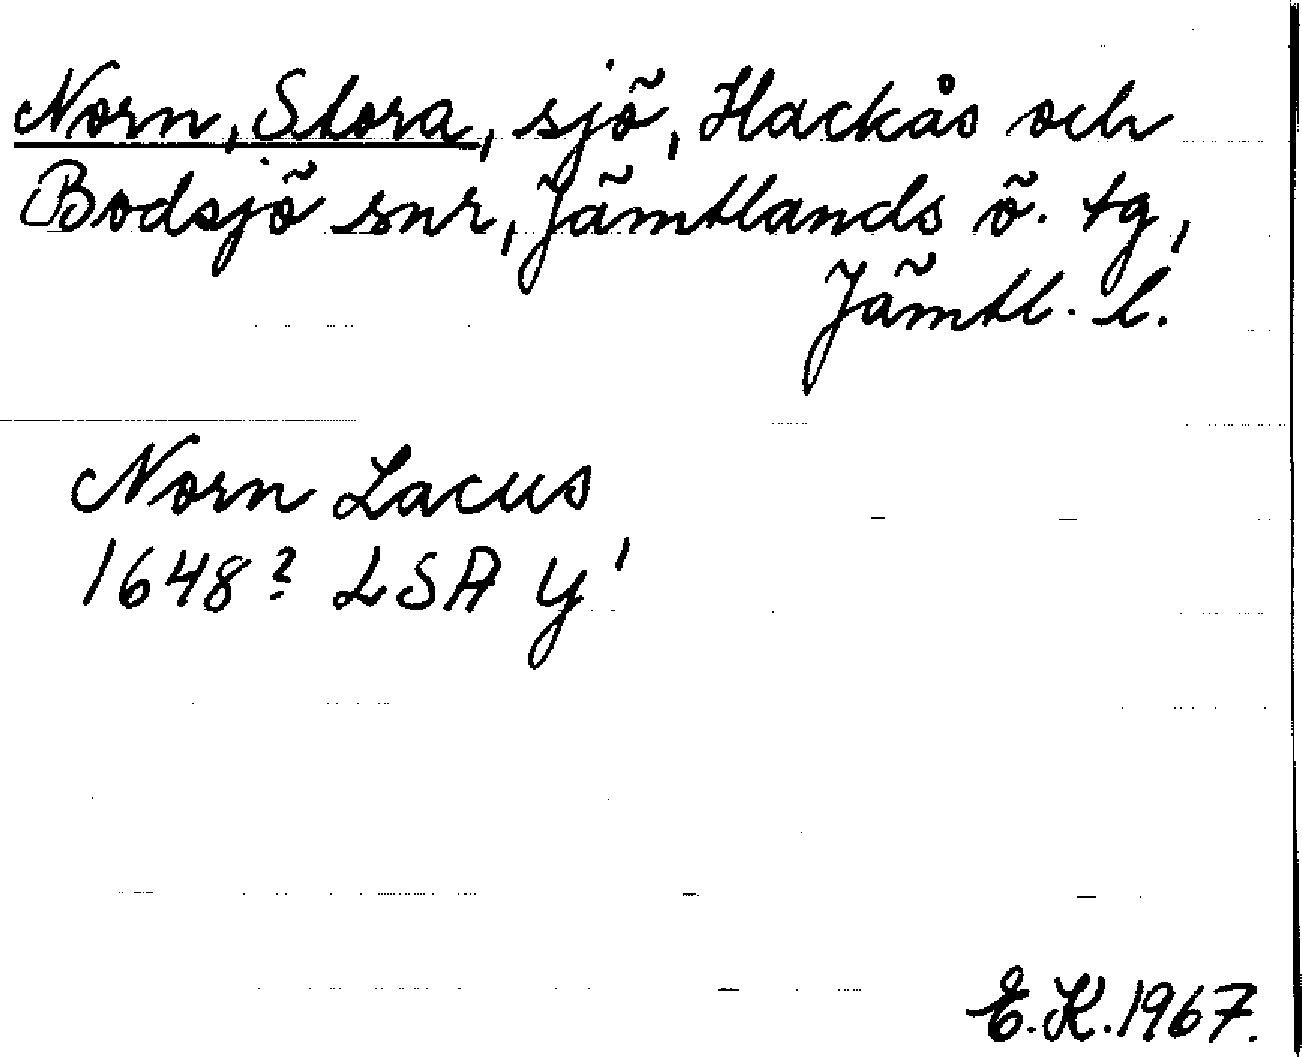 Norn, Stora, sjö, Hackås och
Bodsjö snr, Jämtlands ö. tg,
Jämtl. l.
Norn Lacus
1648? LSA Y'
E.K. 1967.